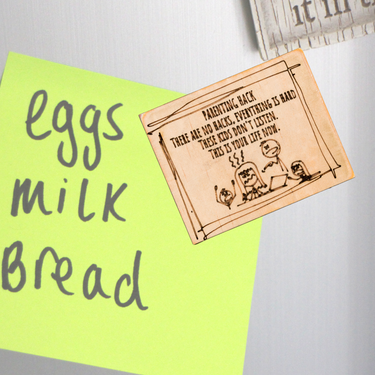 it in t
eggs
milk
Bread
PARENTING HACK
THERE ARE NO HACKS. EVERYTHING IS HARD
THESE KIDS DON'T LISTEN.
THIS IS YOUR LIFE NOW.